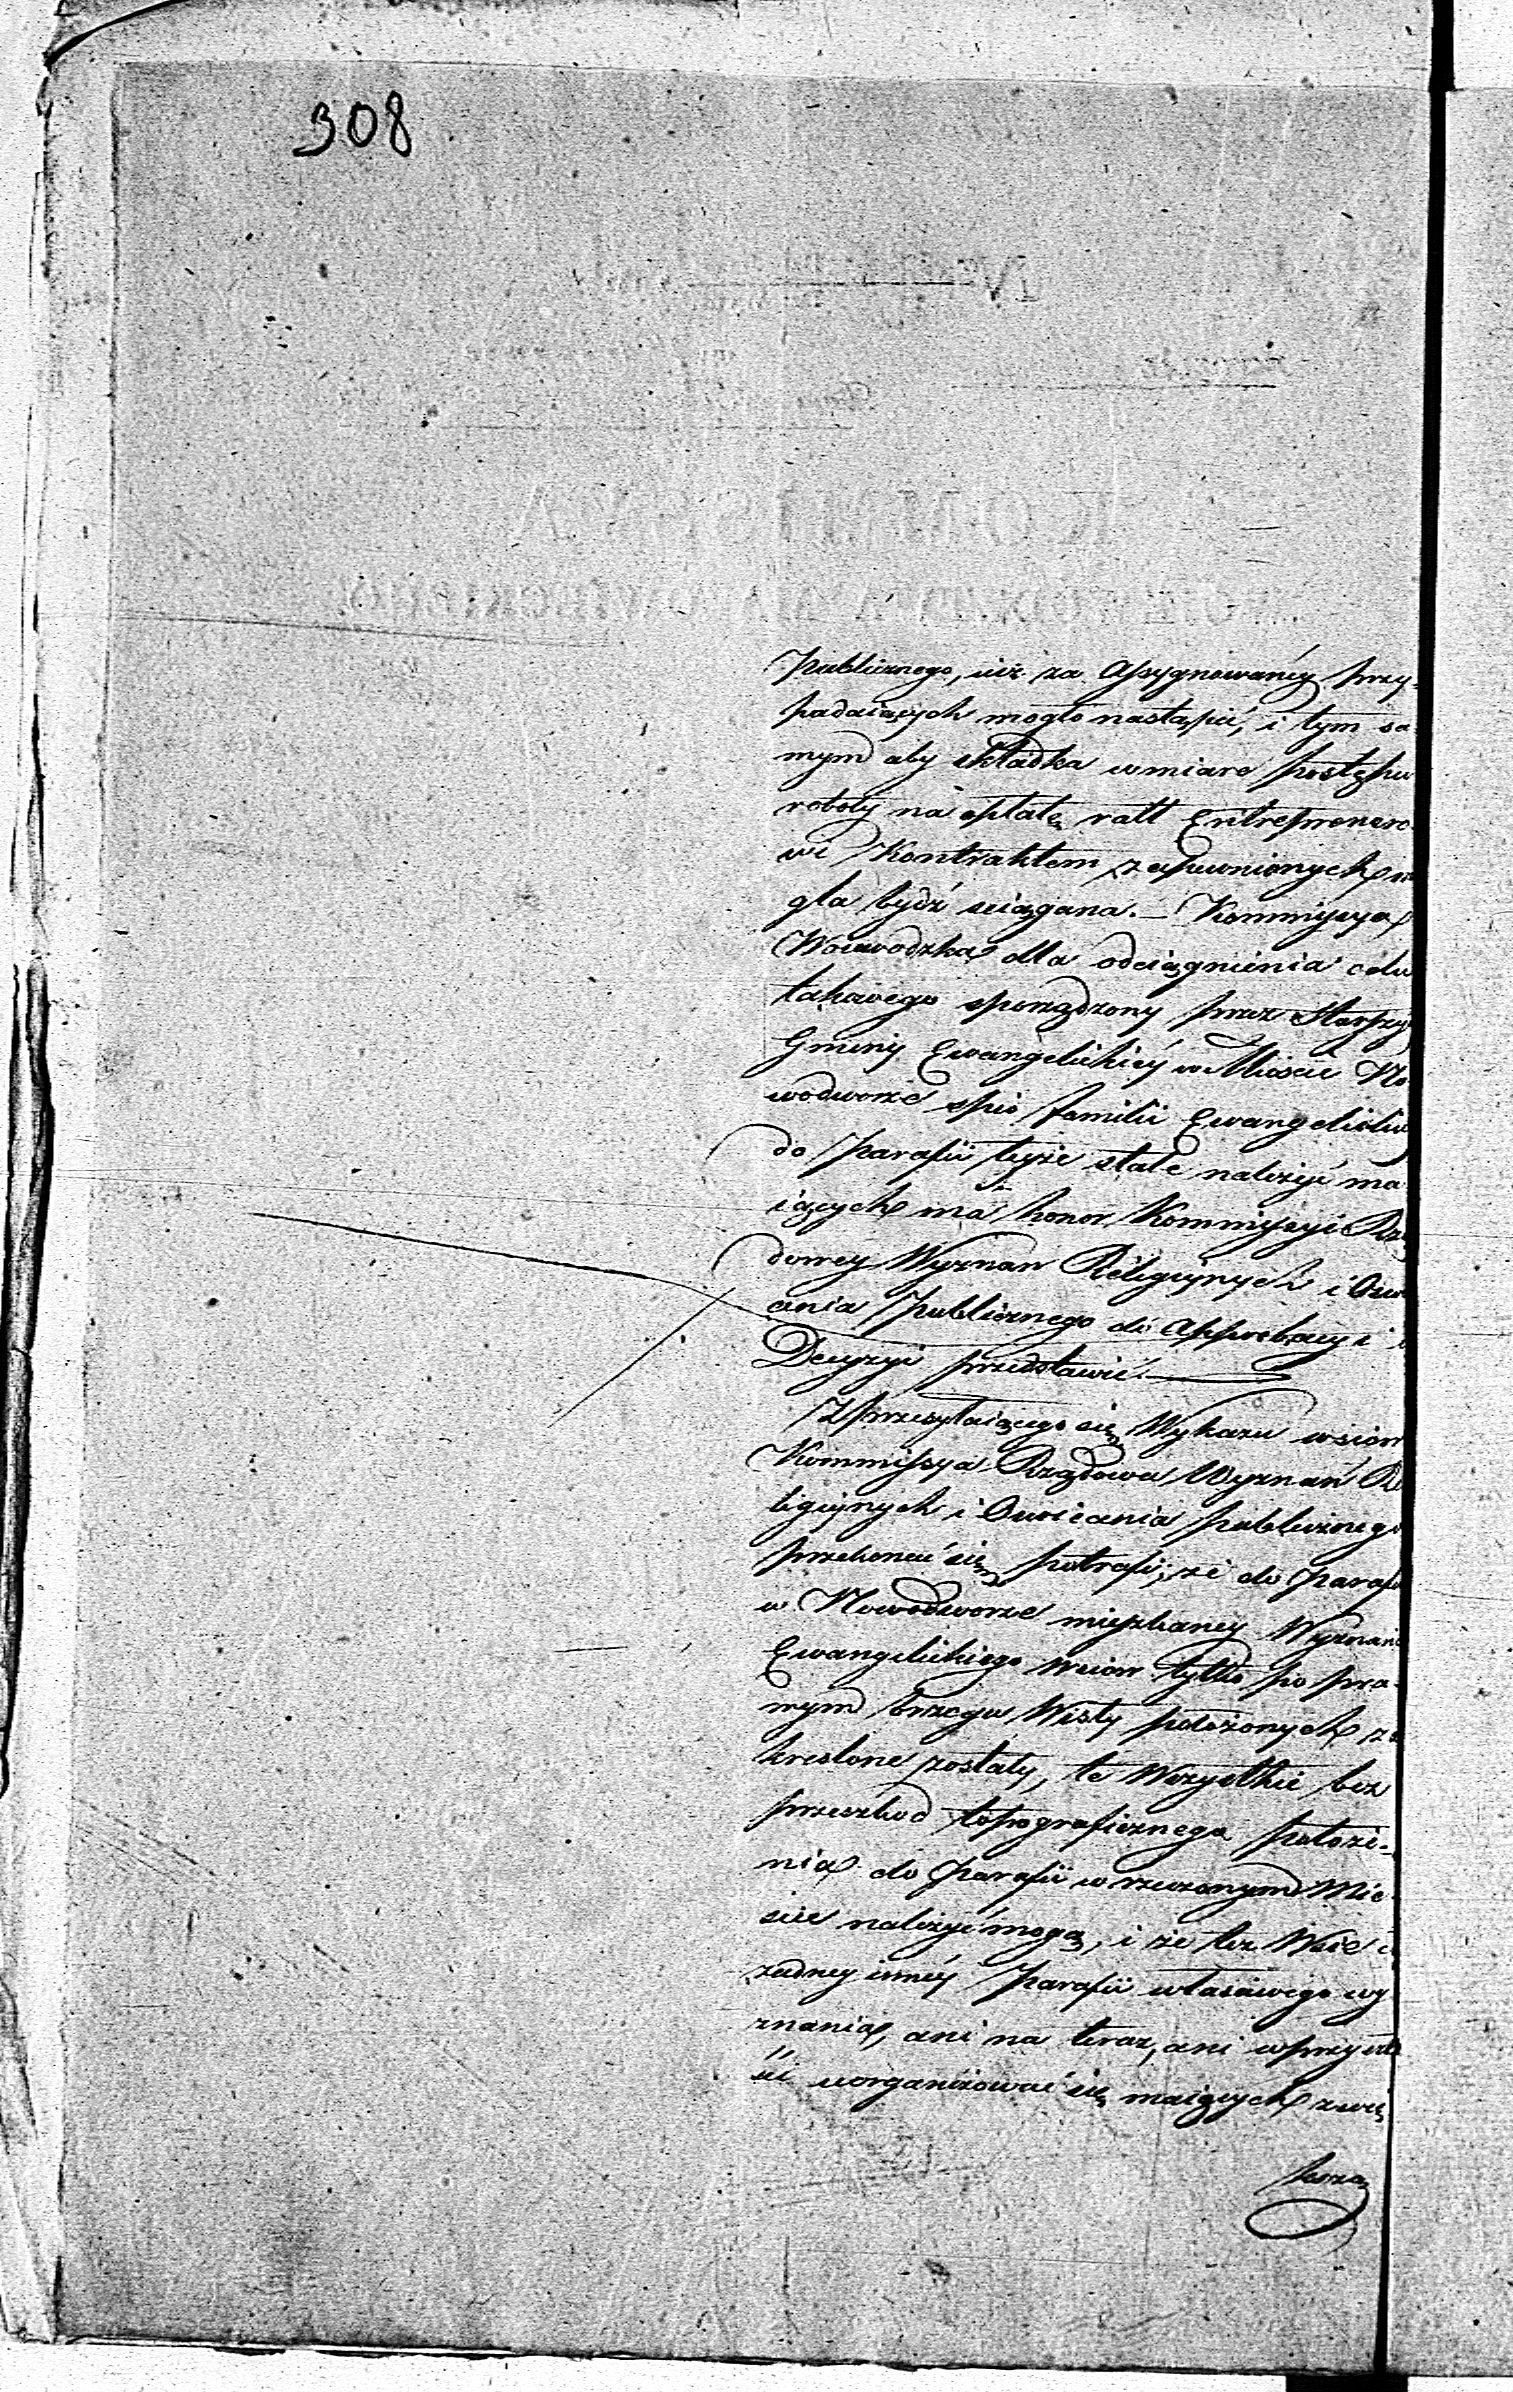 308
Publicznego, iuż za Assygnowaniéy przy-
padaiących mogło nastąpić, i tym sa-
mym aby składka w miarę postępu
roboty na opłatę ratt Entreprenero-
wi Kontraktem zapewnionych mo
gła bydź sciągana. – Kommissya
Woiewodzka dla odciągnienia celu
takowego sporządzony przez Starszych
Gminy Ewangelickiéy w Mieście No
wodworze spis familii Ewangelickich
do Parafii teyże stale należyć ma
iących ma honor Kommissyi Rzą
dowey Wyznań Religiynych i Oświe
cenia Publicznego do Approbacyi i
Decyzyi przedstawić.
Z przesyłaiącego się Wykazu wsiów
Kommissya Rządowa Wyznań Re
ligiynych i Oświecenia publicznego
przekonać się potrafi, że do Parafii
w Nowodworze mieyskaney Wyznania
Ewangelickiego wsiów tylko po pra-
wym brzegu Wisły położonych za
kreślone zostały, te wszystkie bez
przeszkod topograficznego położe-
nia do Parafii w rzeczonym Mie-
ście należyć mogą, i że tez Wsie i
żadney innéy Parafii właściwego wy
znania, ani na teraz, ani w przyszło
ści uorganizować się maiących zwię
ksza